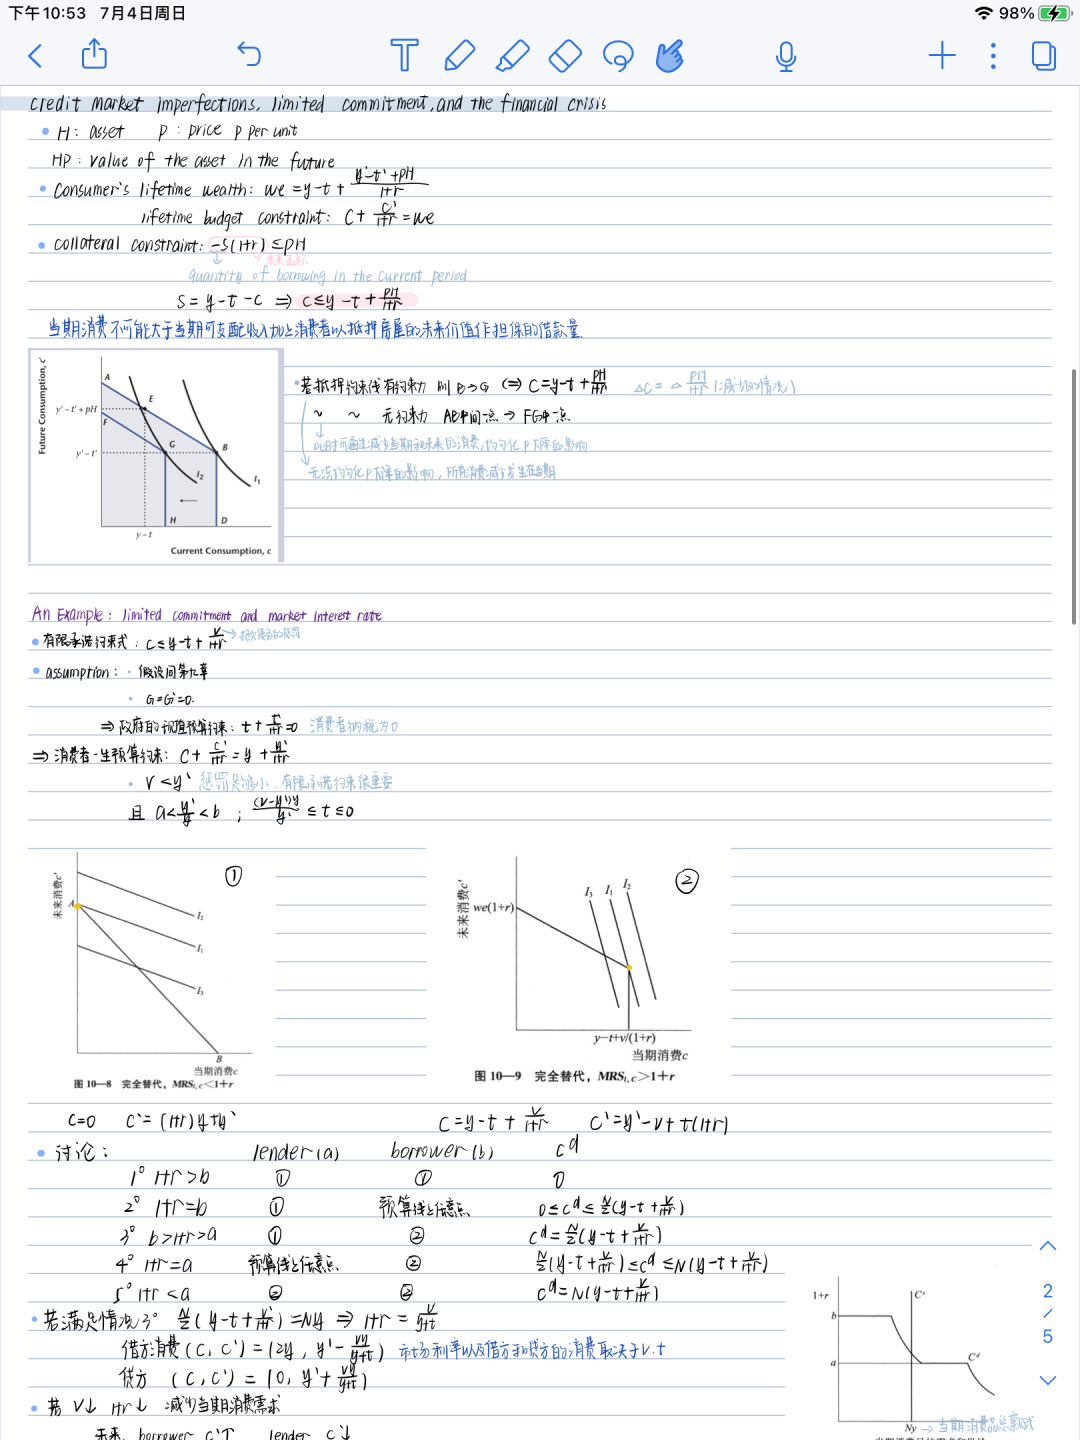 下午10:53 7月4日周日
98%
Credit Market Imperfections, limited commitment, and the financial crisis
• H: asset P: price p per unit
HP: value of the asset in the future
• Consumer's lifetime wealth: we = y-t + (y'-t'+pH)/(1+r)
lifetime budget constraint: C + c'/(1+r) = we
• collateral constraint: -S(1+r) ≤ pH
未来还款
quantity of borrowing in the current period
S = y-t-c ⇒ C ≤ y-t + pH/(1+r)
当期消费不可能大于当期可支配收入加上消费者以抵押房屋的未来价值作担保的借款量.
Future Consumption, c'
A
E
y' – t' + pH
F
G
B
y' – t'
I₂
I₁
H
D
y – t
Current Consumption, c
• 若抵押约束线有约束力 则 B→G ⇔ C = y-t + pH/(1+r) ΔC = Δ pH/(1+r) (减少的情况)
~ ~ 无约束力 AB中间一点 → FG中一点
此时可通过减少当期和未来的消费,均匀化P下降的影响
无法均匀化P下降的影响,所有消费减少发生在当期
An Example: limited commitment and market interest rate
• 有限承诺约束式: C ≤ y-t + v/(1+r)
• assumption: • 假设同第九章
• G=G'=0.
⇒ 政府的现值预算约束: t + t'/(1+r) = 0 消费者纳税为0
⇒ 消费者一生预算约束: C + c'/(1+r) = y + y'/(1+r)
• V < y' 惩罚足够小, 有限承诺约束很重要
且 a < y'/y < b ; (v-y')y/y' ≤ t ≤ 0
①
未来消费c'
A
I₂
I₁
I₃
B
当期消费c
图 10—8 完全替代，MRS_{l,c}<1+r
②
未来消费c'
we(1+r)
I₃ I₁ I₂
y-t+v/(1+r)
当期消费c
图 10—9 完全替代，MRS_{l,c}>1+r
C=0 C' = (1+r)y+y'
C = y-t + v/(1+r) C' = y'-v+t(1+r)
• 讨论: lender(a) borrower(b) c^d
1° 1+r>b ① ① 0
2° 1+r=b ① 预算线上任意点. 0 ≤ c^d ≤ N/2(y-t+v/(1+r))
3° b>1+r>a ① ② c^d = N/2(y-t+v/(1+r))
4° 1+r=a 预算线上任意点. ② N/2(y-t+v/(1+r)) ≤ c^d ≤ N(y-t+v/(1+r))
5° 1+r<a ② ② c^d = N(y-t+v/(1+r))
• 若满足情况3° N/2(y-t+v/(1+r)) = Ny ⇒ 1+r = v/(y+t)
借方消费 (C, C') = (2y, y' - vy/(y+t)) 市场利率以及借方和贷方的消费取决于v.t
贷方 (C, C') = (0, y' + vy/(y+t))
• 若 V↓ 1+r↓ 减少当期消费需求
未来 borrower c'↑ lender c'↓
1+r
C^s
b
a
C^d
Ny
→ 当期消费品总禀赋
2
/
5